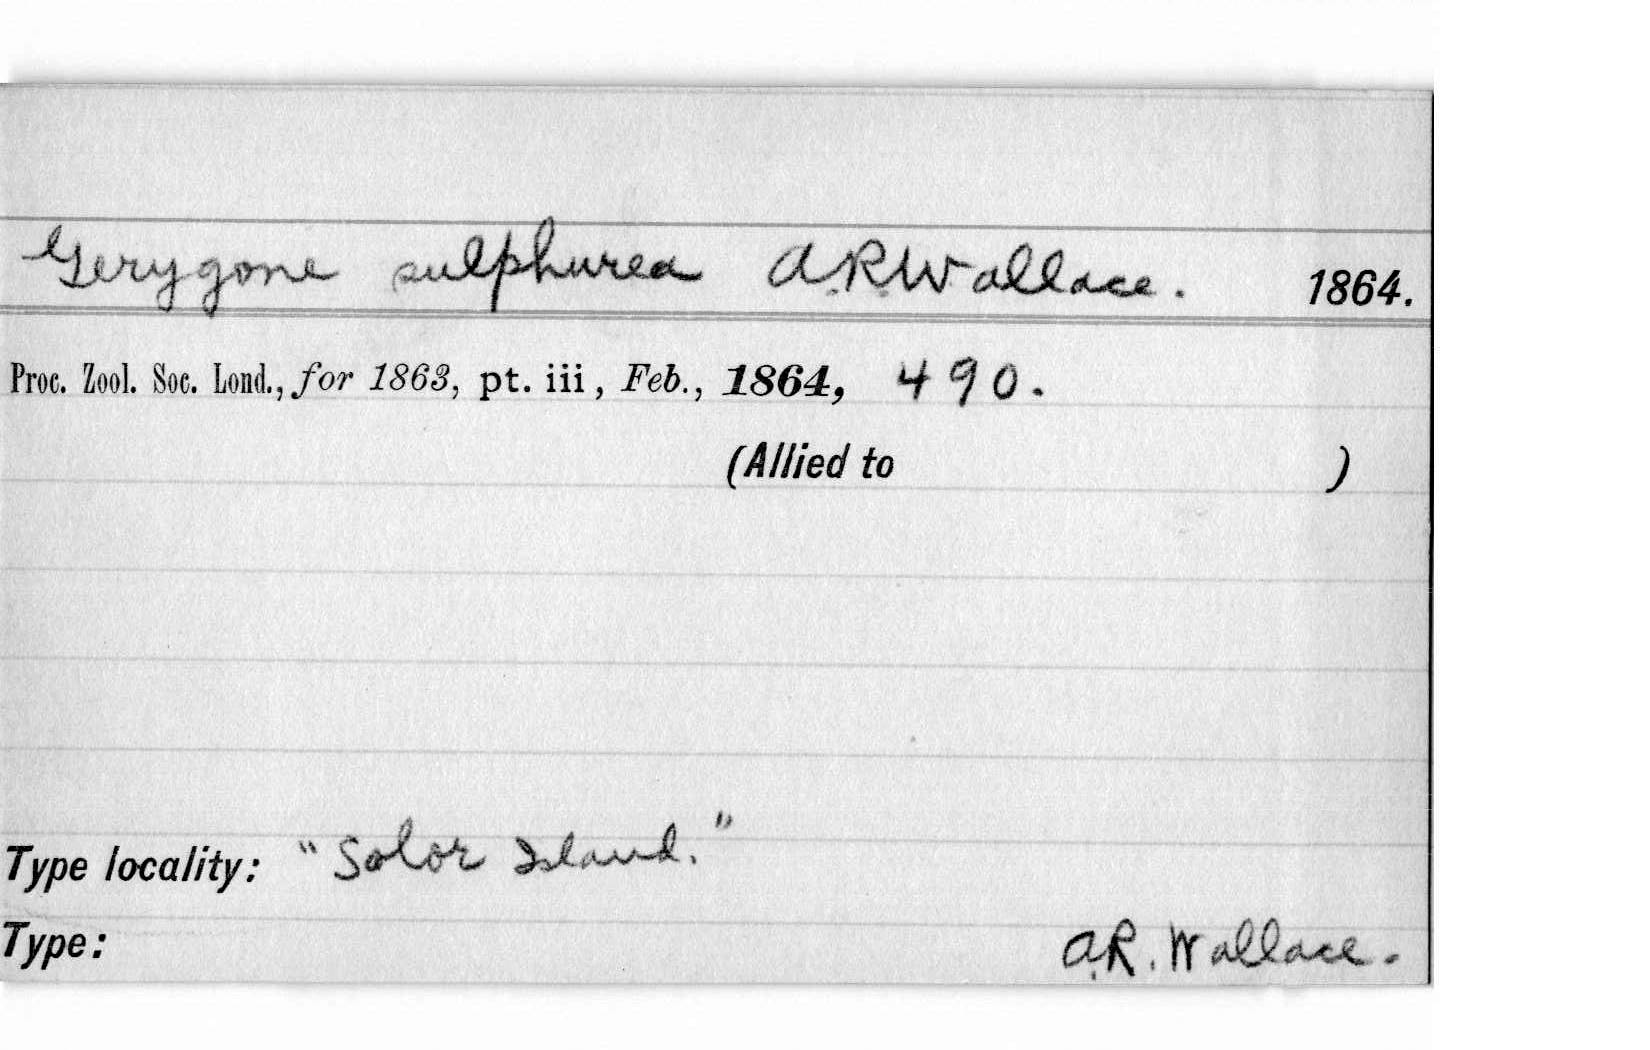 Gerygone sulphurea A.R.Wallace. 1864.
Proc. Zool. Soc. Lond., for 1863, pt. iii, Feb., 1864, 490.
(Allied to )
Type locality: "Solor Island."
Type: A.R. Wallace.